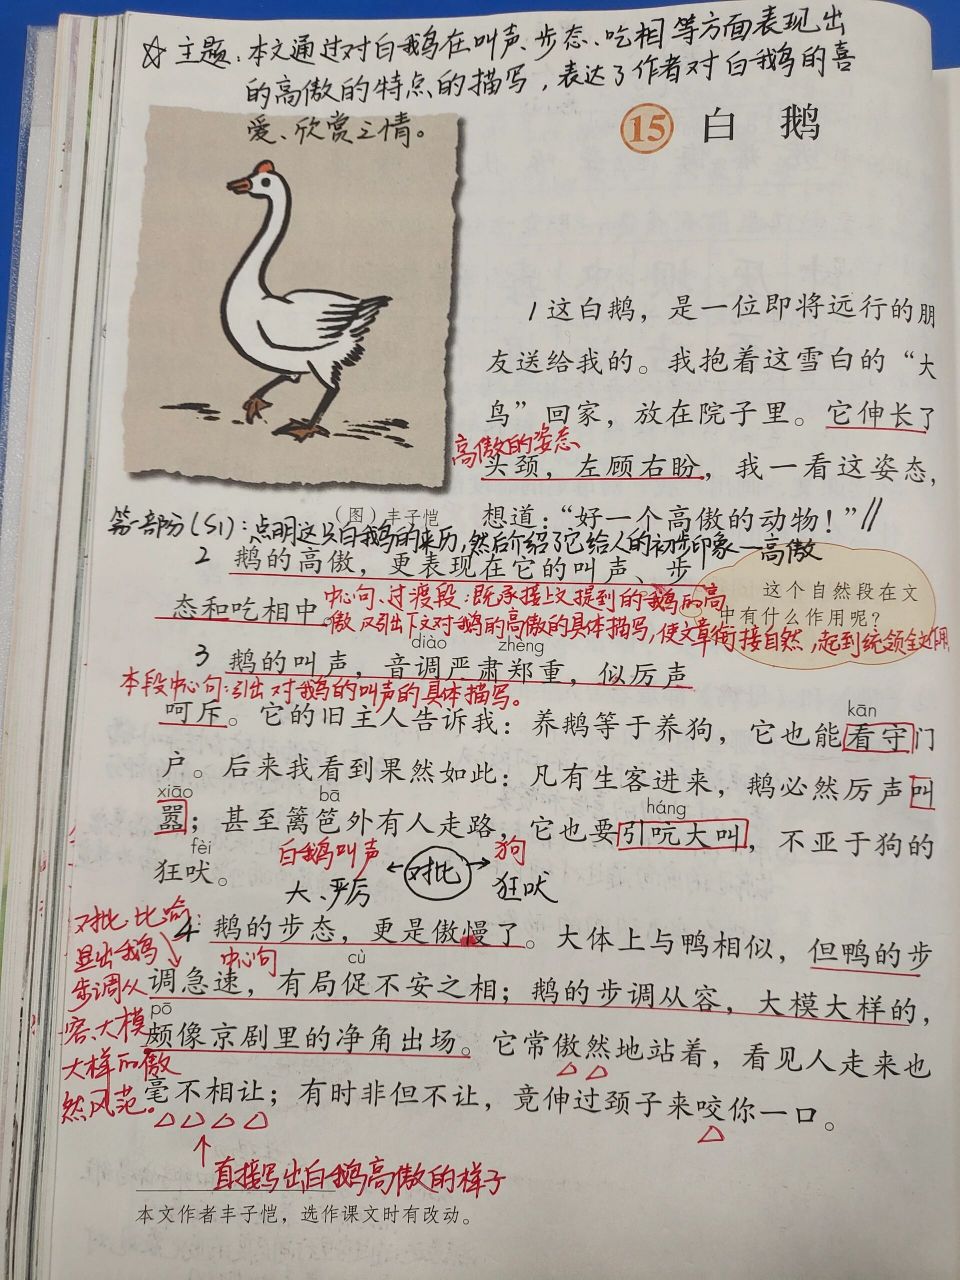 ☆主题:本文通过对白鹅在叫声、步态、吃相等方面表现出
的高傲的特点的描写,表达了作者对白鹅的喜
爱、欣赏之情。
15 白 鹅
1这白鹅，是一位即将远行的朋
友送给我的。我抱着这雪白的“大
鸟”回家，放在院子里。它伸长了
高傲的姿态
头颈，左顾右盼，我一看这姿态，
（图）丰子恺
想道：“好一个高傲的动物！”//
第一部分(S1):点明这只白鹅的来历,然后介绍了它给人的初步印象—高傲
2 鹅的高傲，更表现在它的叫声、步
态和吃相中。
中心句、过渡段:既承接上文提到的鹅的高
傲又引出下文对鹅的高傲的具体描写,使文章衔接自然,起到统领全文作用
这个自然段在文
中有什么作用呢？
diào zhèng
3 鹅的叫声，音调严肃郑重，似厉声
本段中心句:引出对鹅的叫声的具体描写。
kān
呵斥。它的旧主人告诉我：养鹅等于养狗，它也能看守门
户。后来我看到果然如此：凡有生客进来，鹅必然厉声叫
xiāo bā háng
嚣；甚至篱笆外有人走路，它也要引吭大叫，不亚于狗的
fèi
狂吠。
白鹅叫声 ←对比→ 狗
大、严厉 狂吠
对比、比喻:
显出鹅
步调从
容、大模
大样的傲
然风范。
4 鹅的步态，更是傲慢了。大体上与鸭相似，但鸭的步
中心句
cù
调急速，有局促不安之相；鹅的步调从容，大模大样的，
pō
颇像京剧里的净角出场。它常傲然地站着，看见人走来也
毫不相让；有时非但不让，竟伸过颈子来咬你一口。
直接写出白鹅高傲的样子
本文作者丰子恺，选作课文时有改动。